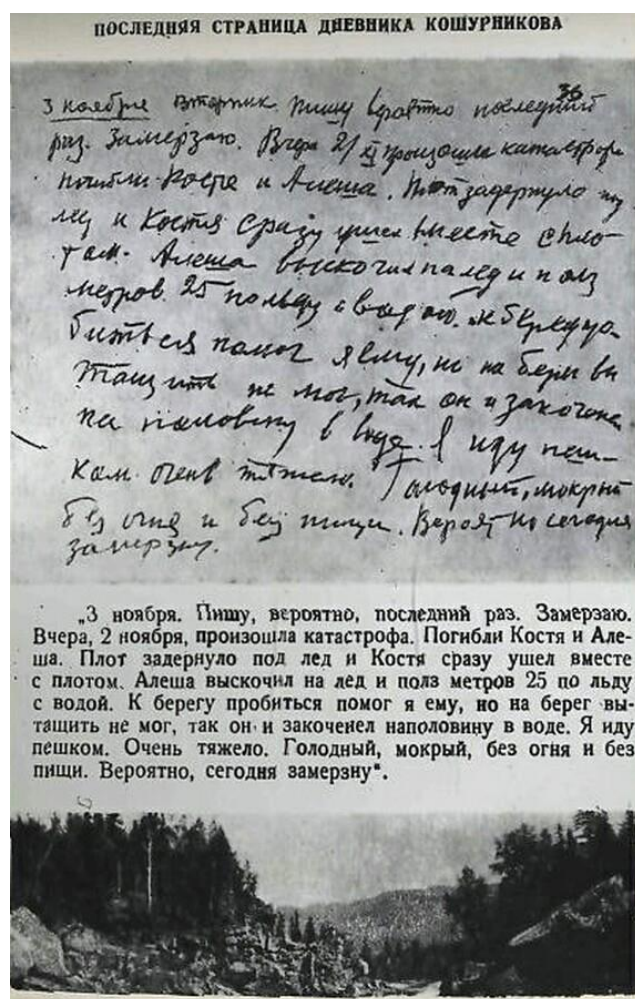 ПОСЛЕДНЯЯ СТРАНИЦА ДНЕВНИКА КОШУРНИКОВА
36
3 ноября вторник. Пишу вероятно последний
раз. Замерзаю. Вчера 2/XI произошла катастрофа
погибли Костя и Алеша. Плот задернуло под
лед и Костя сразу ушел вместе с пло-
том. Алеша выскочил на лед и полз
метров 25 по льду с водой. К берегу про-
биться помог я ему, но на берег вы
тащить не мог, так он и закоченел
на половину в воде. Я иду пеш-
ком. очень тяжело. Голодный, мокрый
без огня и без пищи. Вероятно сегодня
замерзну.
„3 ноября. Пишу, вероятно, последний раз. Замерзаю.
Вчера, 2 ноября, произошла катастрофа. Погибли Костя и Але-
ша. Плот задернуло под лед и Костя сразу ушел вместе
с плотом. Алеша выскочил на лед и полз метров 25 по льду
с водой. К берегу пробиться помог я ему, но на берег вы-
тащить не мог, так он и закоченел наполовину в воде. Я иду
пешком. Очень тяжело. Голодный, мокрый, без огня и без
пищи. Вероятно, сегодня замерзну".